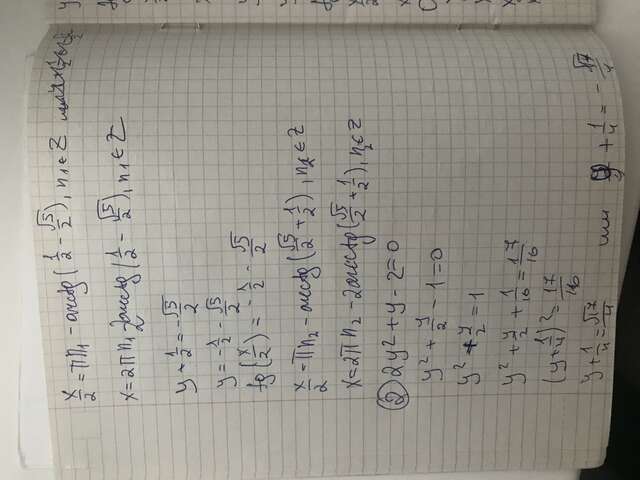 x/2 = πn₁ - arctg(1/2 - √5/2), n₁ ∈ Z или
x = 2πn₁ - 2arctg(1/2 - √5/2), n₁ ∈ Z
y + 1/2 = -√5/2
y = -1/2 - √5/2
tg(x/2) = -1/2 - √5/2
x/2 = πn₂ - arctg(√5/2 + 1/2), n₂ ∈ Z
x = 2πn₂ - 2arctg(√5/2 + 1/2), n₂ ∈ Z
② 2y² + y - 2 = 0
y² + y/2 - 1 = 0
y² + y/2 = 1
y² + y/2 + 1/16 = 17/16
(y + 1/4)² = 17/16
y + 1/4 = √17/4 или y + 1/4 = -√17/4